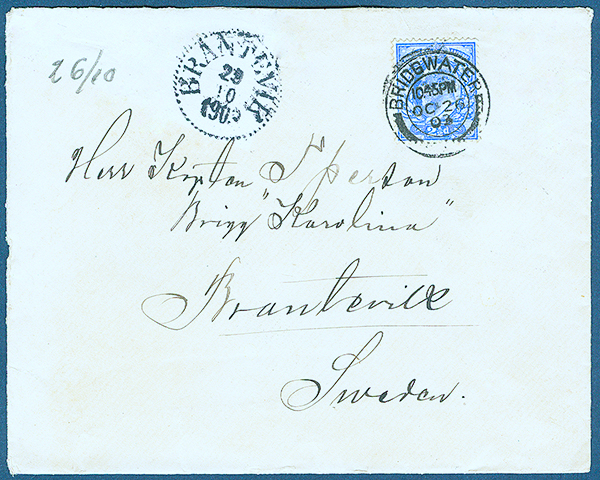 26/10
BRANTEVIK
29
10
1903
BRIDGWATER
1045PM
OC 26
03
Herr Kapten
Brigg "Karolina"
Brantevik
Sweden.